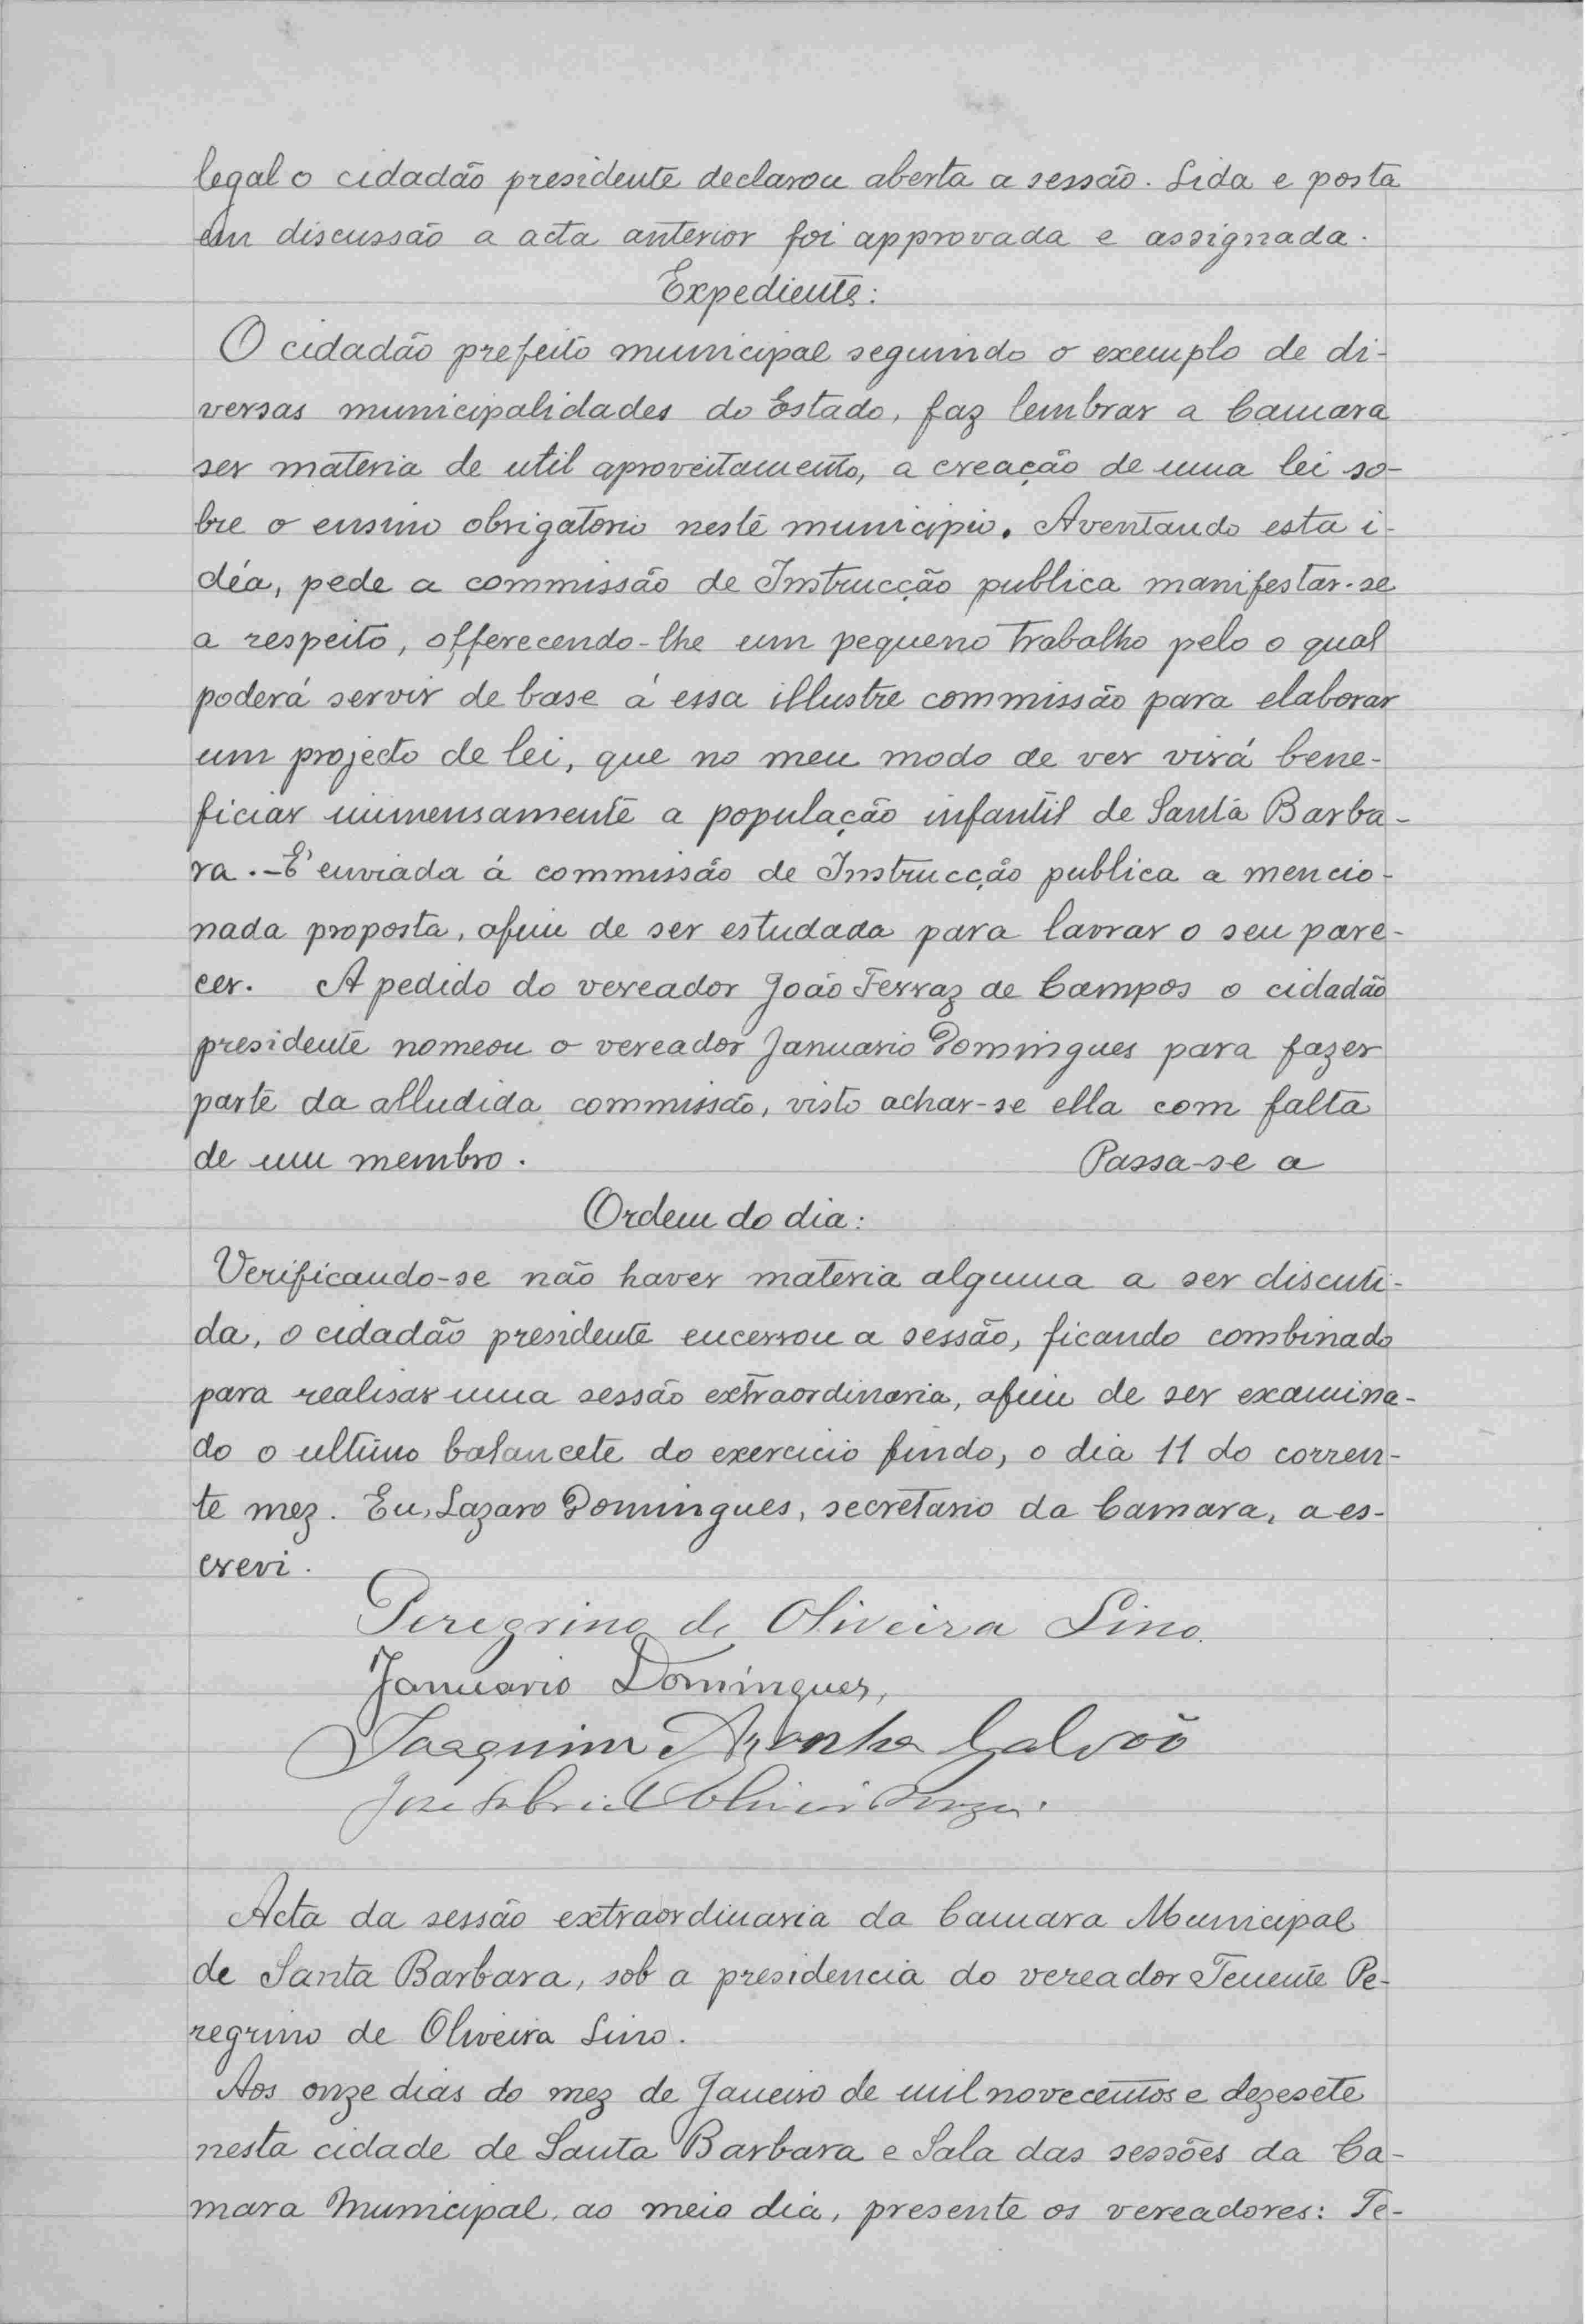 legal o cidadão presidente declarou aberta a sessão. Lida e posta
em discussão a acta anterior foi approvada e assignada.
Expediente:
O cidadão prefeito municipal seguindo o exemplo de di-
versas municipalidades do Estado, faz lembrar a Camara
ser materia de util aproveitamento, a creação de uma lei so-
bre o ensino obrigatorio neste municipio. Aventando esta i-
déa, pede a commissão de Instrucção publica manifestar-se
a respeito, offerecendo-lhe um pequeno trabalho pelo o qual
poderá servir de base á essa illustre commissão para elaborar
um projecto de lei, que no meu modo de ver virá bene-
ficiar immensamente a população infantil de Santa Barba-
ra. - E' enviada á commissão de Instrucção publica a mencio-
nada proposta, afim de ser estudada para lavrar o seu pare-
cer. A pedido do vereador João Ferraz de Campos o cidadão
presidente nomeou o vereador Januario Domingues para fazer
parte da alludida commissão, visto achar-se ella com falta
de um membro. Passa-se a
Ordem do dia:
Verificando-se não haver materia alguma a ser discuti-
da, o cidadão presidente encerrou a sessão, ficando combinado
para realisar uma sessão extraordinaria, afim de ser examina-
do o ultimo balancete do exercicio findo, o dia 11 do corren-
te mez. Eu, Lazaro Domingues, secretario da Camara, a es-
crevi.
Peregrino de Oliveira Lino.
Januario Domingues,
Joaquim Aranha Galvão
José Gabriel Oliveira
Acta da sessão extraordinaria da Camara Municipal
de Santa Barbara, sob a presidencia do vereador Tenente Pe-
regrino de Oliveira Lino.
Aos onze dias do mez de Janeiro de mil novecentos e dezesete
nesta cidade de Santa Barbara e Sala das sessões da Ca-
mara Municipal, ao meio dia, presente os vereadores: Te-